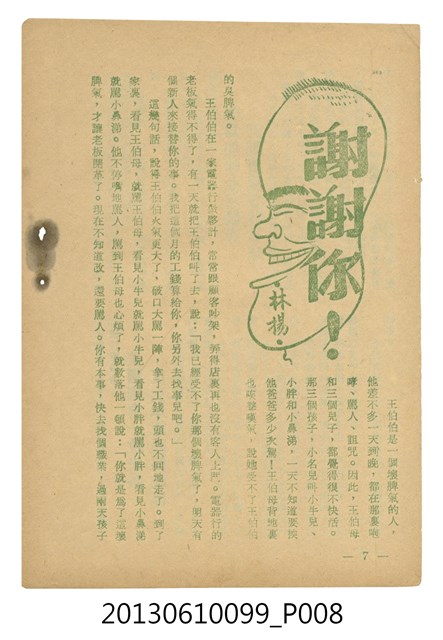 謝謝你!
林楊
王伯伯是一個壞脾氣的人,
他差不多一天到晚,都在那裏咆
哮、罵人、詛咒。因此,王伯母
和三個兒子,都覺得很不快活。
那三個孩子,小名兒叫小牛兒、
小胖和小鼻涕,一天不知道要挨
他爸爸多少次罵!王伯母背地裏
也唉聲嘆氣,說她受不了王伯伯
的臭脾氣。
王伯伯在一家電器行做夥計,常常跟顧客吵架,弄得店裏再也沒有客人上門。電器行的
老板氣得不得了,有一天就把王伯伯叫了去,說:「我已經受不了你那個壞脾氣了,明天有
個新人來接替你的事。我把這個月的工錢算給你,你另外去找事兒吧。」
這幾句話,說得王伯伯火氣更大了,破口大罵一陣,拿了工錢,頭也不回地走了。到了
家裏,看見王伯母,就罵王伯母,看見小牛兒就罵小牛兒,看見小胖就罵小胖,看見小鼻涕
就罵小鼻涕。他不停嘴地罵人,罵到王伯母也心煩了,就數落他一頓說:「你就是為了這壞
脾氣,才讓老板開革了。現在不知道改,還要罵人。你有本事,快去找個職業,過兩天孩子
— 7 —
20130610099_P008